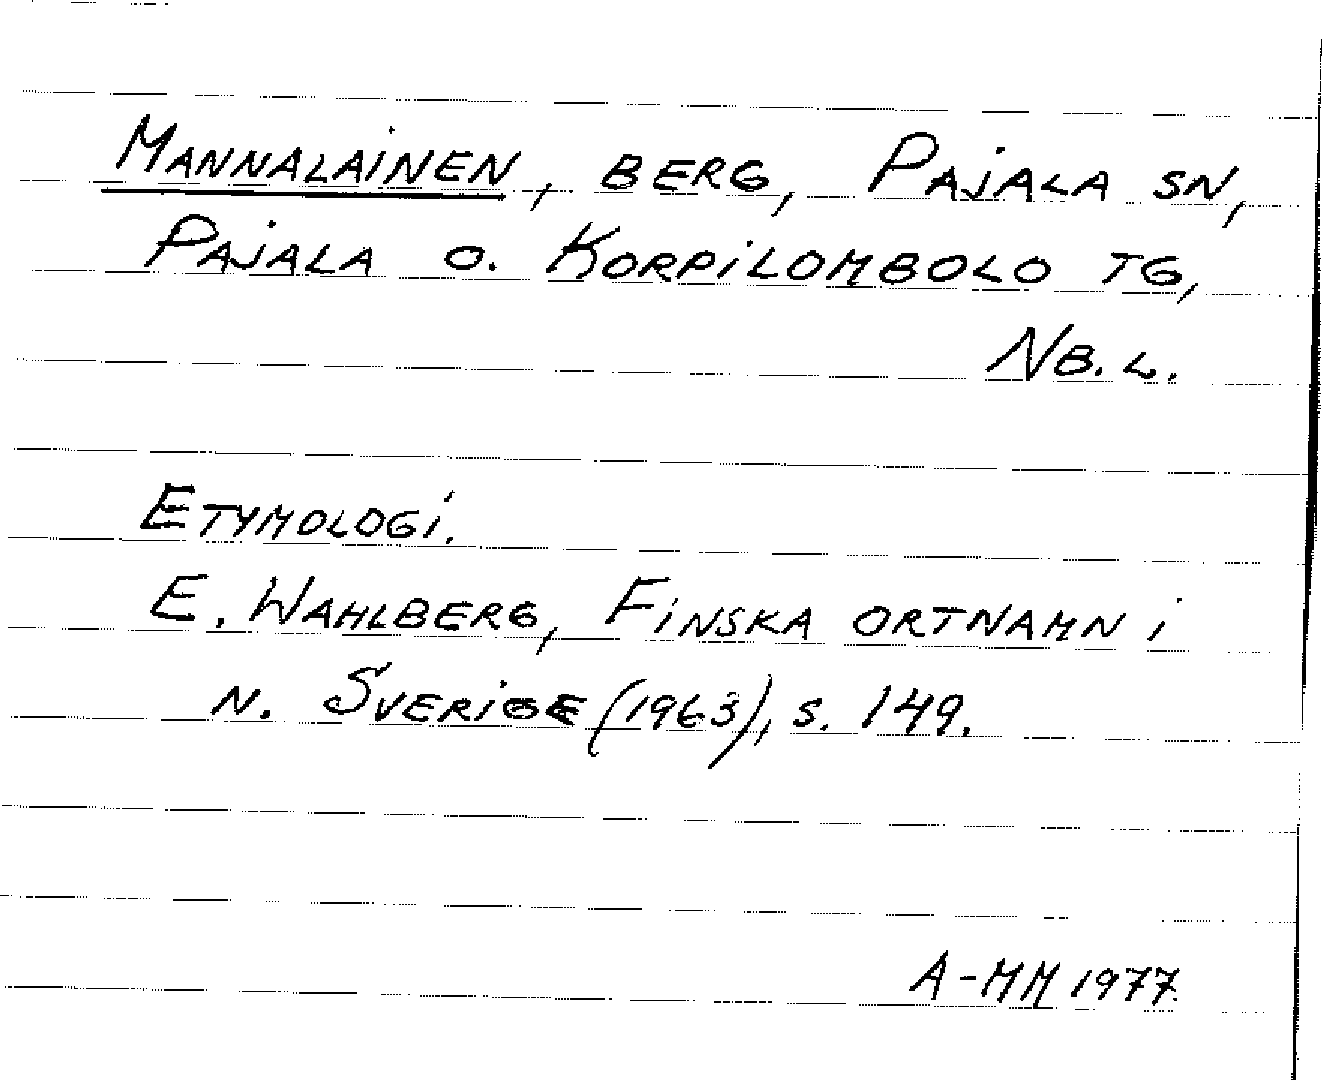 MANNALAINEN, BERG, PAJALA SN,
PAJALA O. KORPILOMBOLO TG,
NB. L.
ETYMOLOGI.
E. WAHLBERG, FINSKA ORTNAMN I
N. SVERIGE (1963), S. 149.
A-MM 1977.